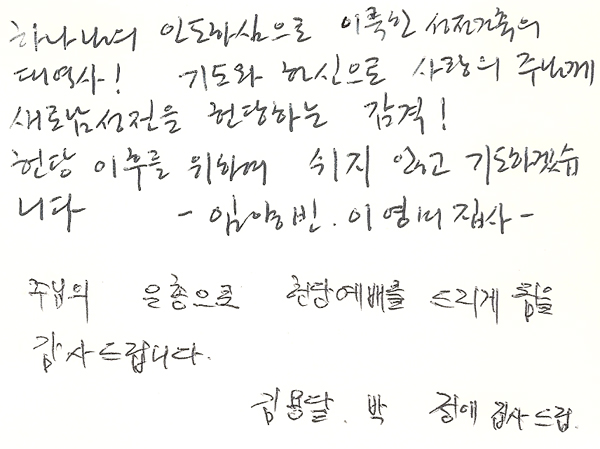 하나님의 인도하심으로 이룩한 성전건축의
대역사! 기도와 헌신으로 사랑의 주님께
새로남성전을 헌당하는 감격!
헌당 이후를 위하여 쉬지 않고 기도하겠습
니다 - 임양빈. 이영미 집사 -
주님의 은총으로 헌당예배를 드리게 됨을
감사드립니다.
김용달. 박 정애 집사 드림.